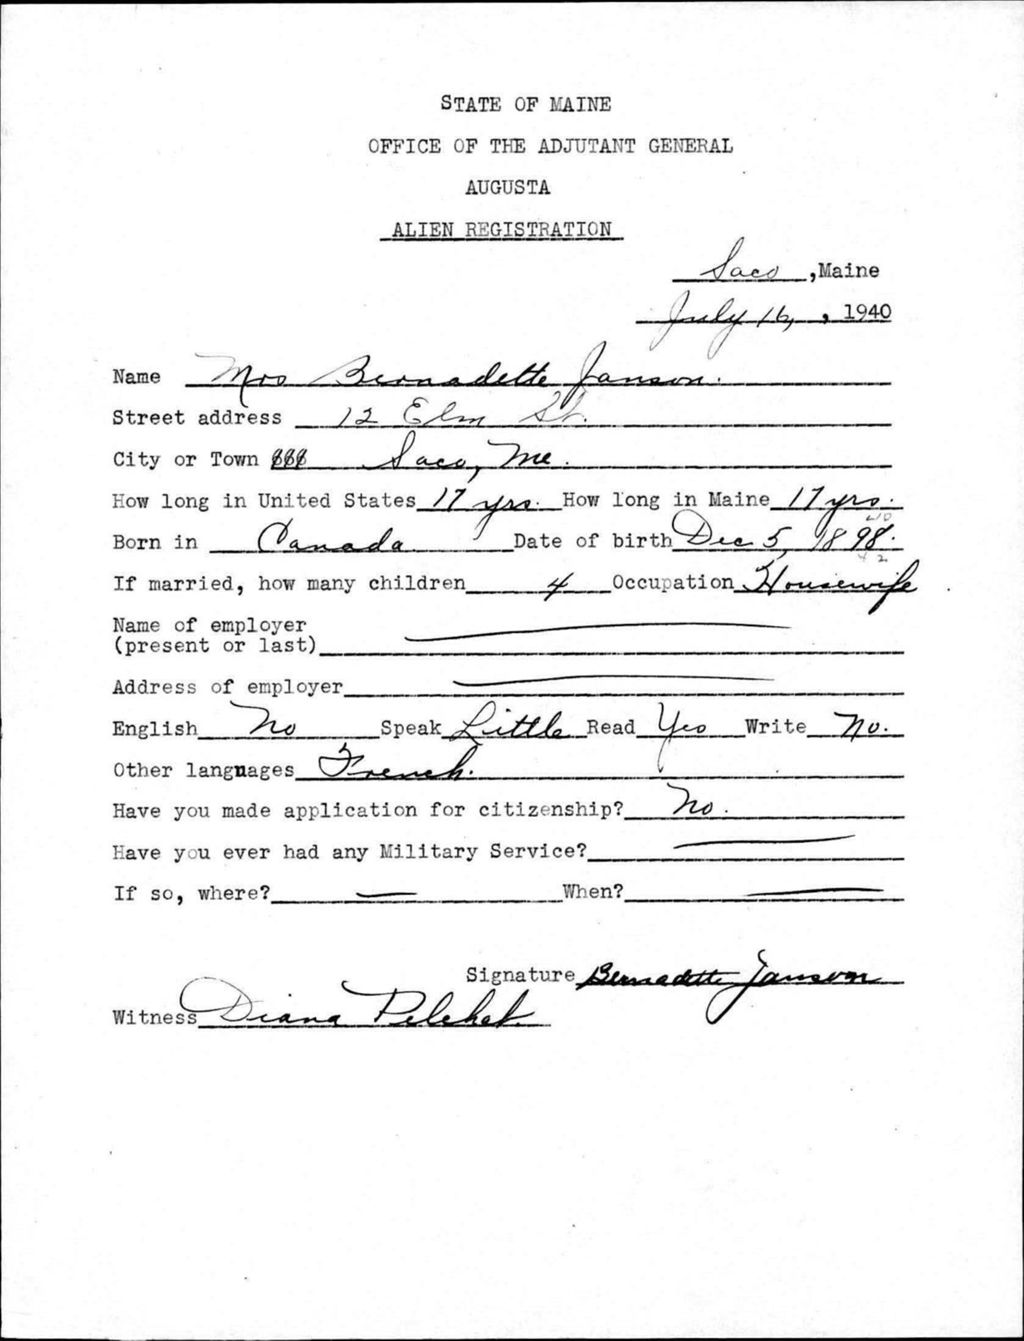 STATE OF MAINE
OFFICE OF THE ADJUTANT GENERAL
AUGUSTA
ALIEN REGISTRATION
Saco, Maine
July 16, , 1940
Name Mrs Bernadette Janson.
Street address 12 Elm St.
City or Town Saco, Me.
How long in United States 17 yrs. How long in Maine 17 yrs.
Born in Canada Date of birth Dec 5, 1898.
If married, how many children 4 Occupation Housewife
Name of employer
(present or last)
Address of employer
English No Speak Little Read Yes Write No.
Other languages French.
Have you made application for citizenship? No.
Have you ever had any Military Service?
If so, where? When?
Signature Bernadette Janson
Witness Diana